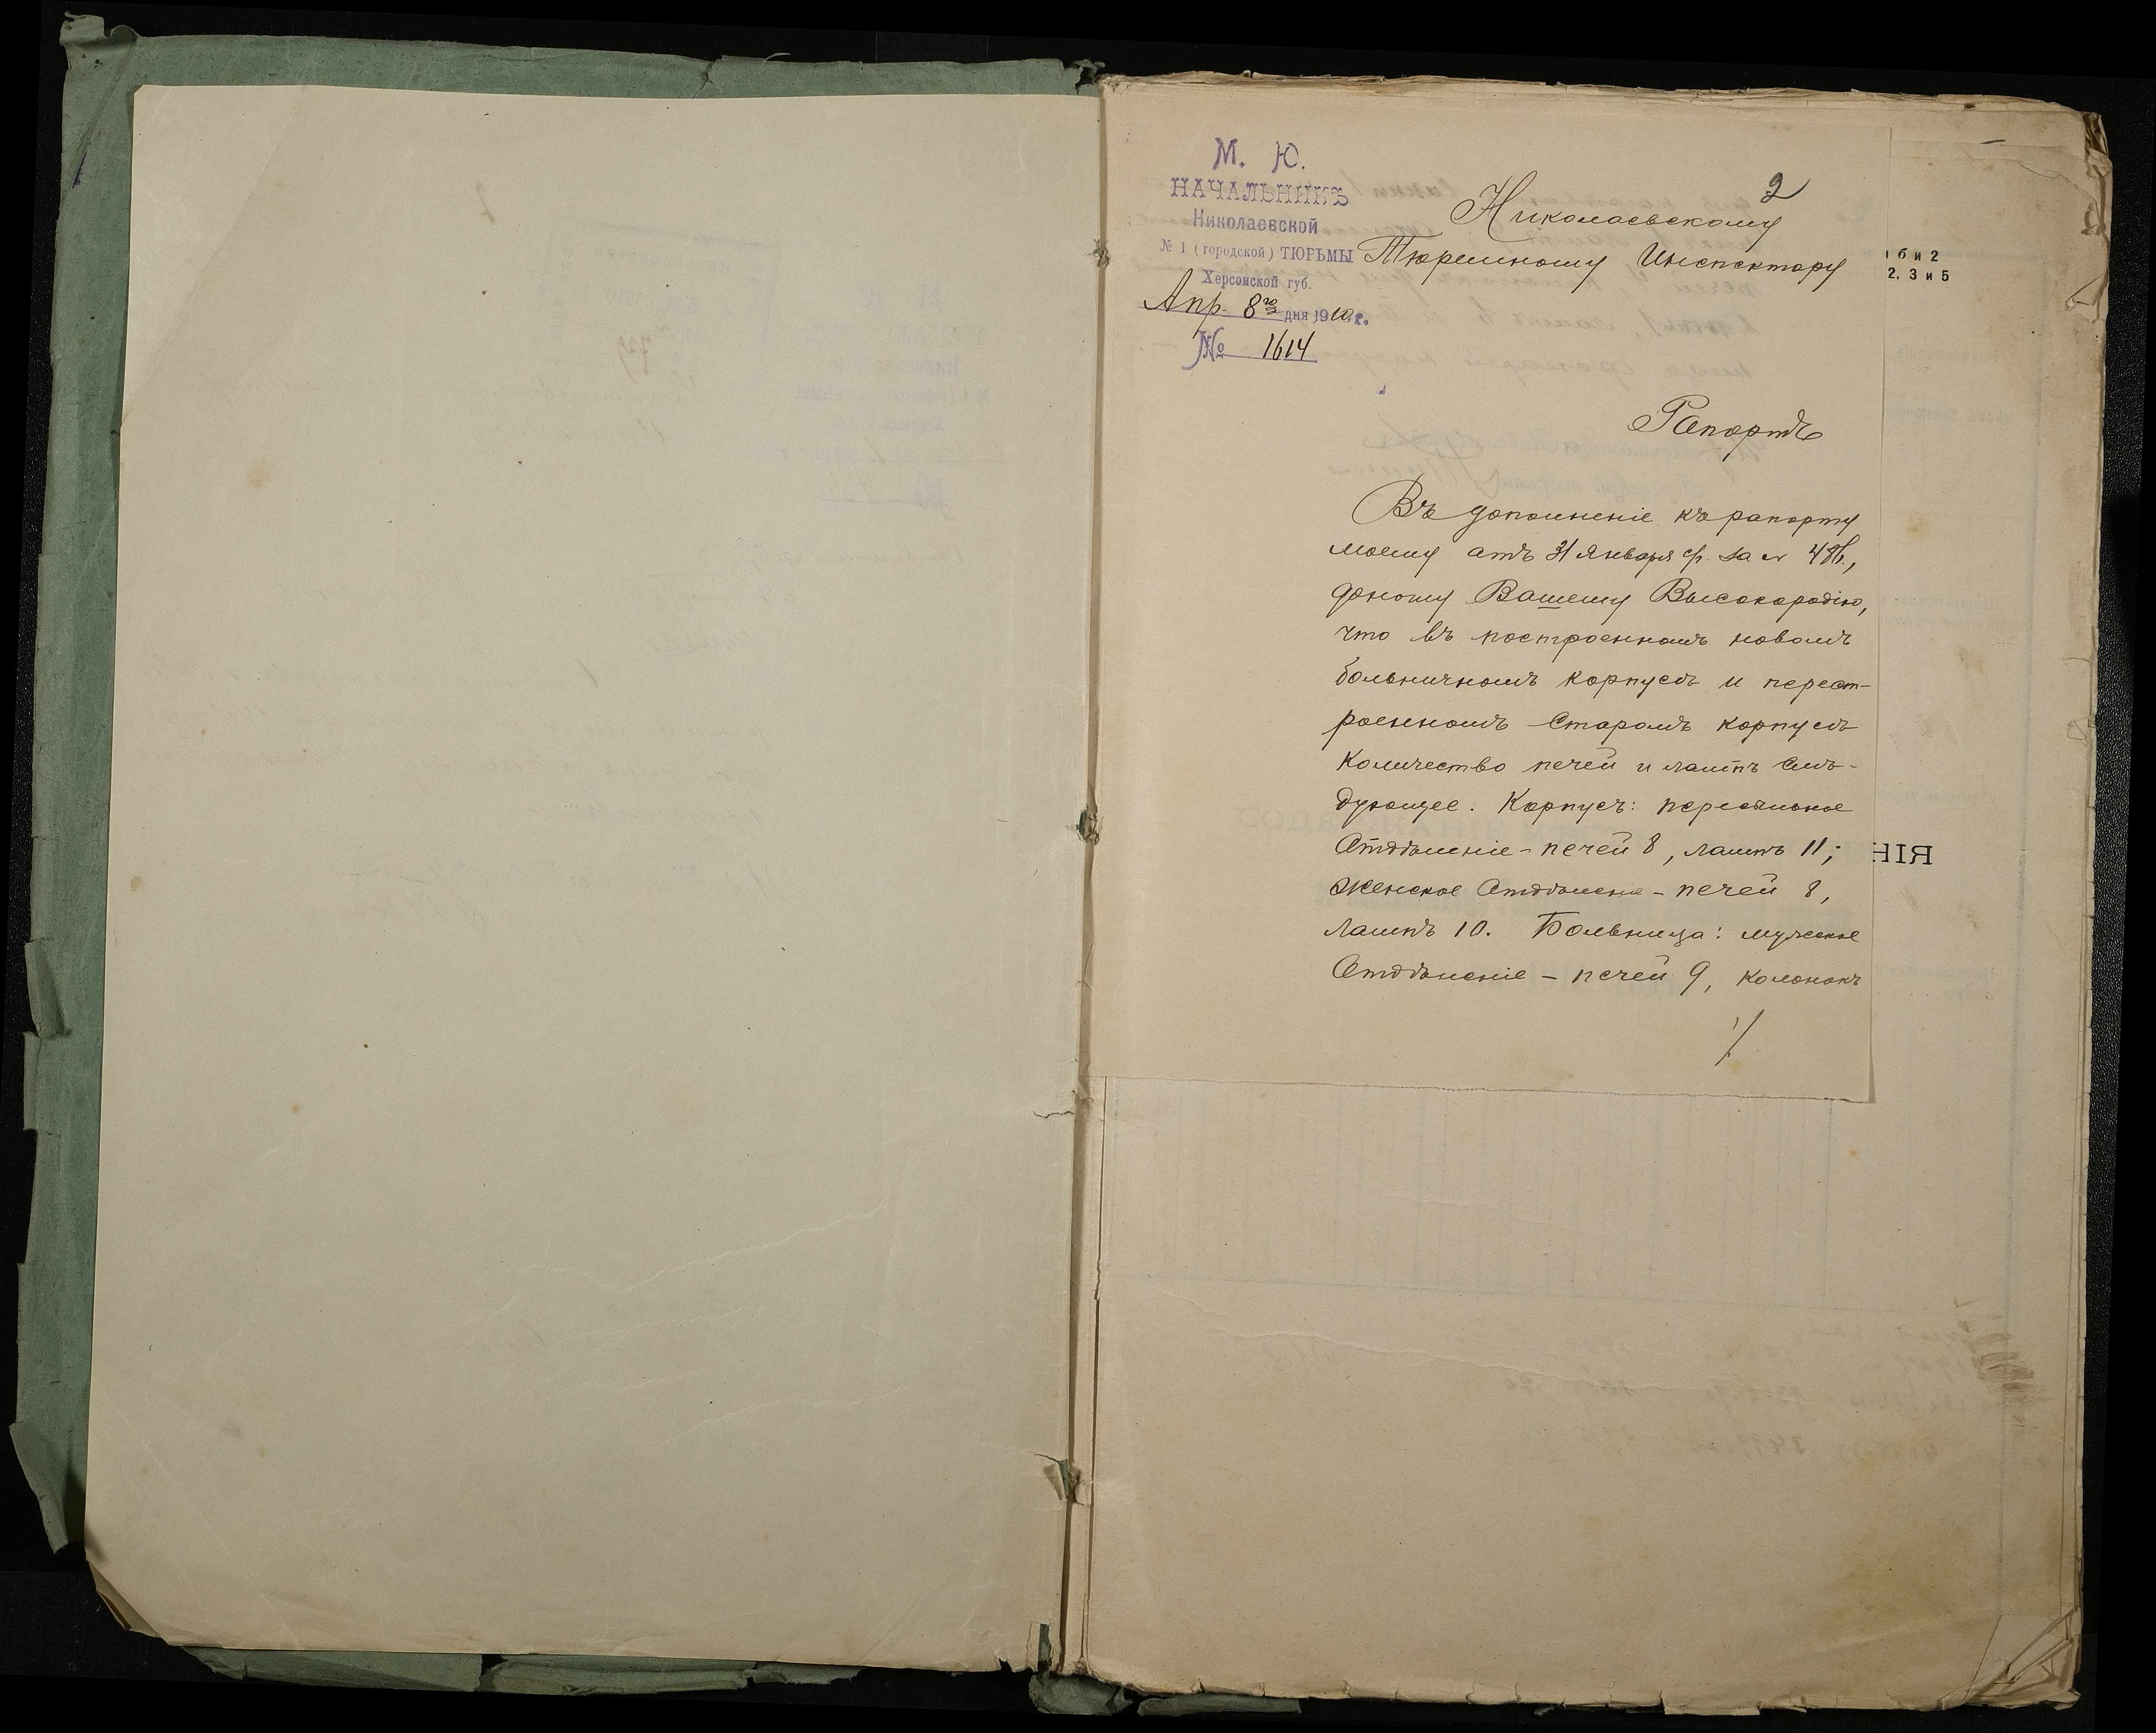 2
М. Ю.
НАЧАЛЬНИКЪ
Николаевской
№ 1 (городской) ТЮРЬМЫ
Херсонской губ.
Апр. 8го дня 1910 г.
№ 1614
Николаевскому
Тюремному Инспектору
Рапортъ
Въ дополненіе къ рапорту
моему отъ 31 Января с/г. за №
доношу Вашему Высокородію,
что въ построенномъ новомъ
больничномъ корпусѣ и перест-
роенномъ Старомъ корпусѣ
Количество печей и лампъ слѣ-
дующее. Корпусъ: пересыльное
Отдѣленіе - печей 8, лампъ 11;
Женское Отдѣленіе - печей 8,
Лампъ 10. Больница: мужское
Отдѣленіе - печей 9, колонокъ
./.
б и 2
2, 3 и 5
НІЯ